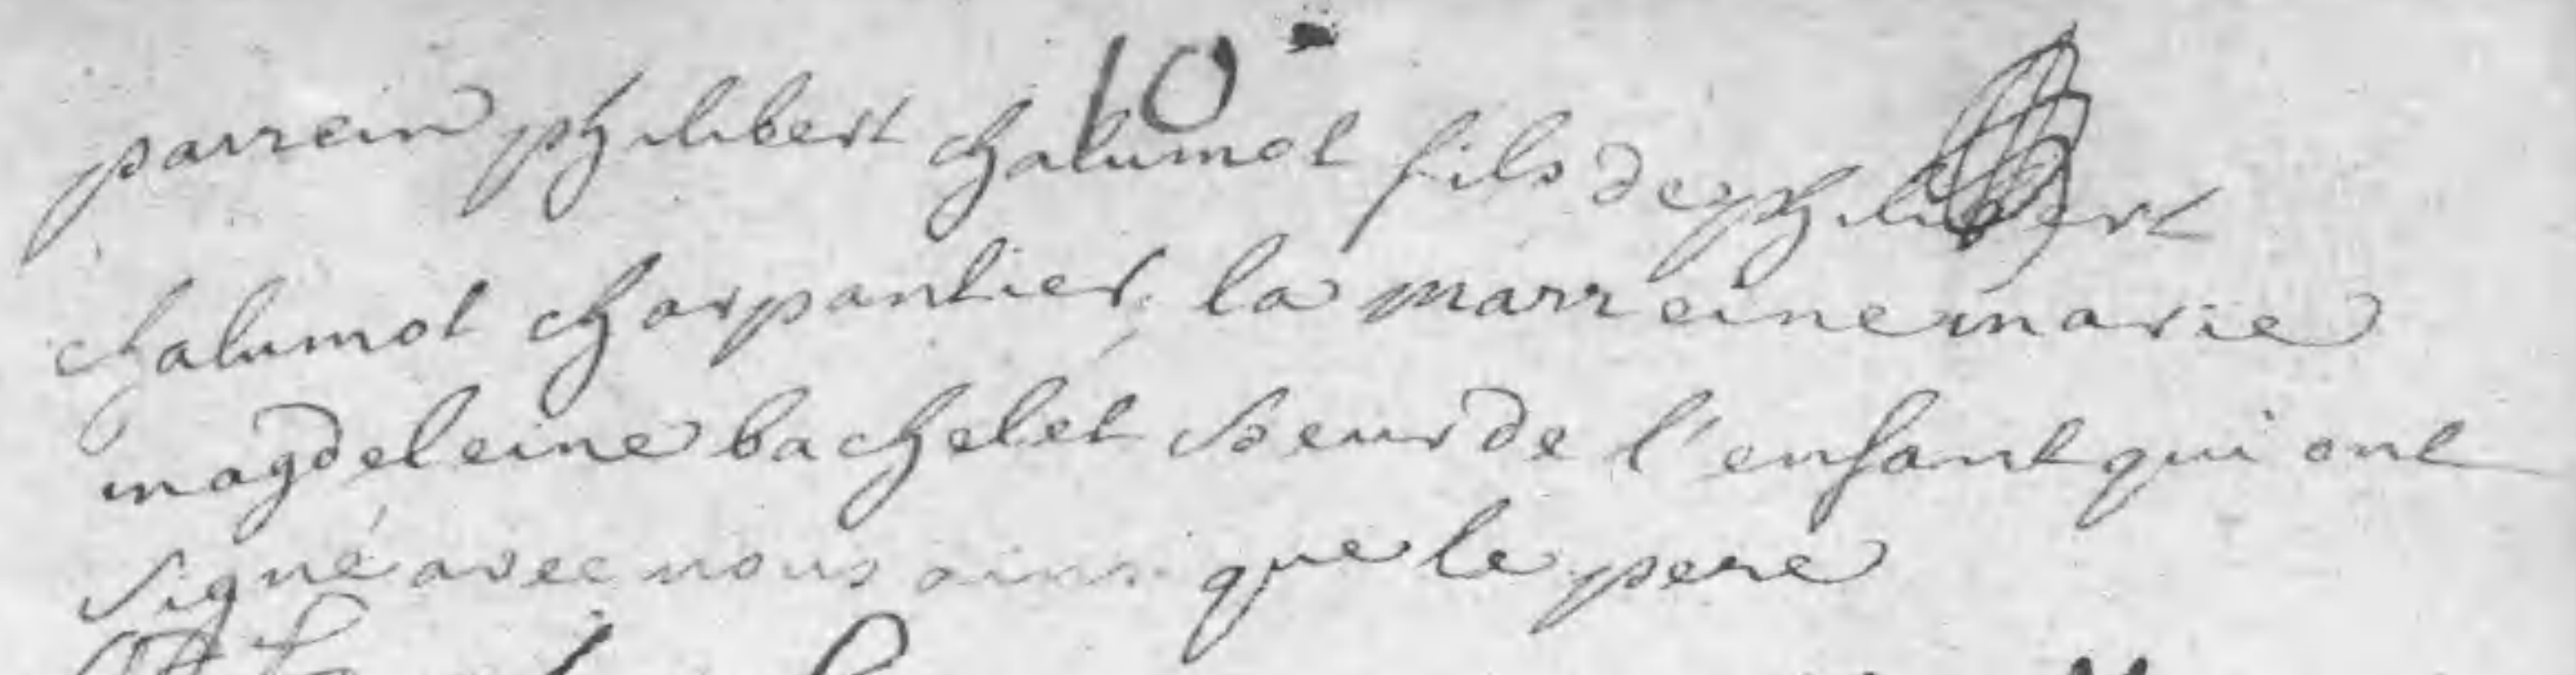 10
parrein philibert chalumot fils de philibert
chalumot charpantier, la marreine marie
magdeleine bachelet soeur de l'enfant qui ont
signé avec nous ainsi que le pere